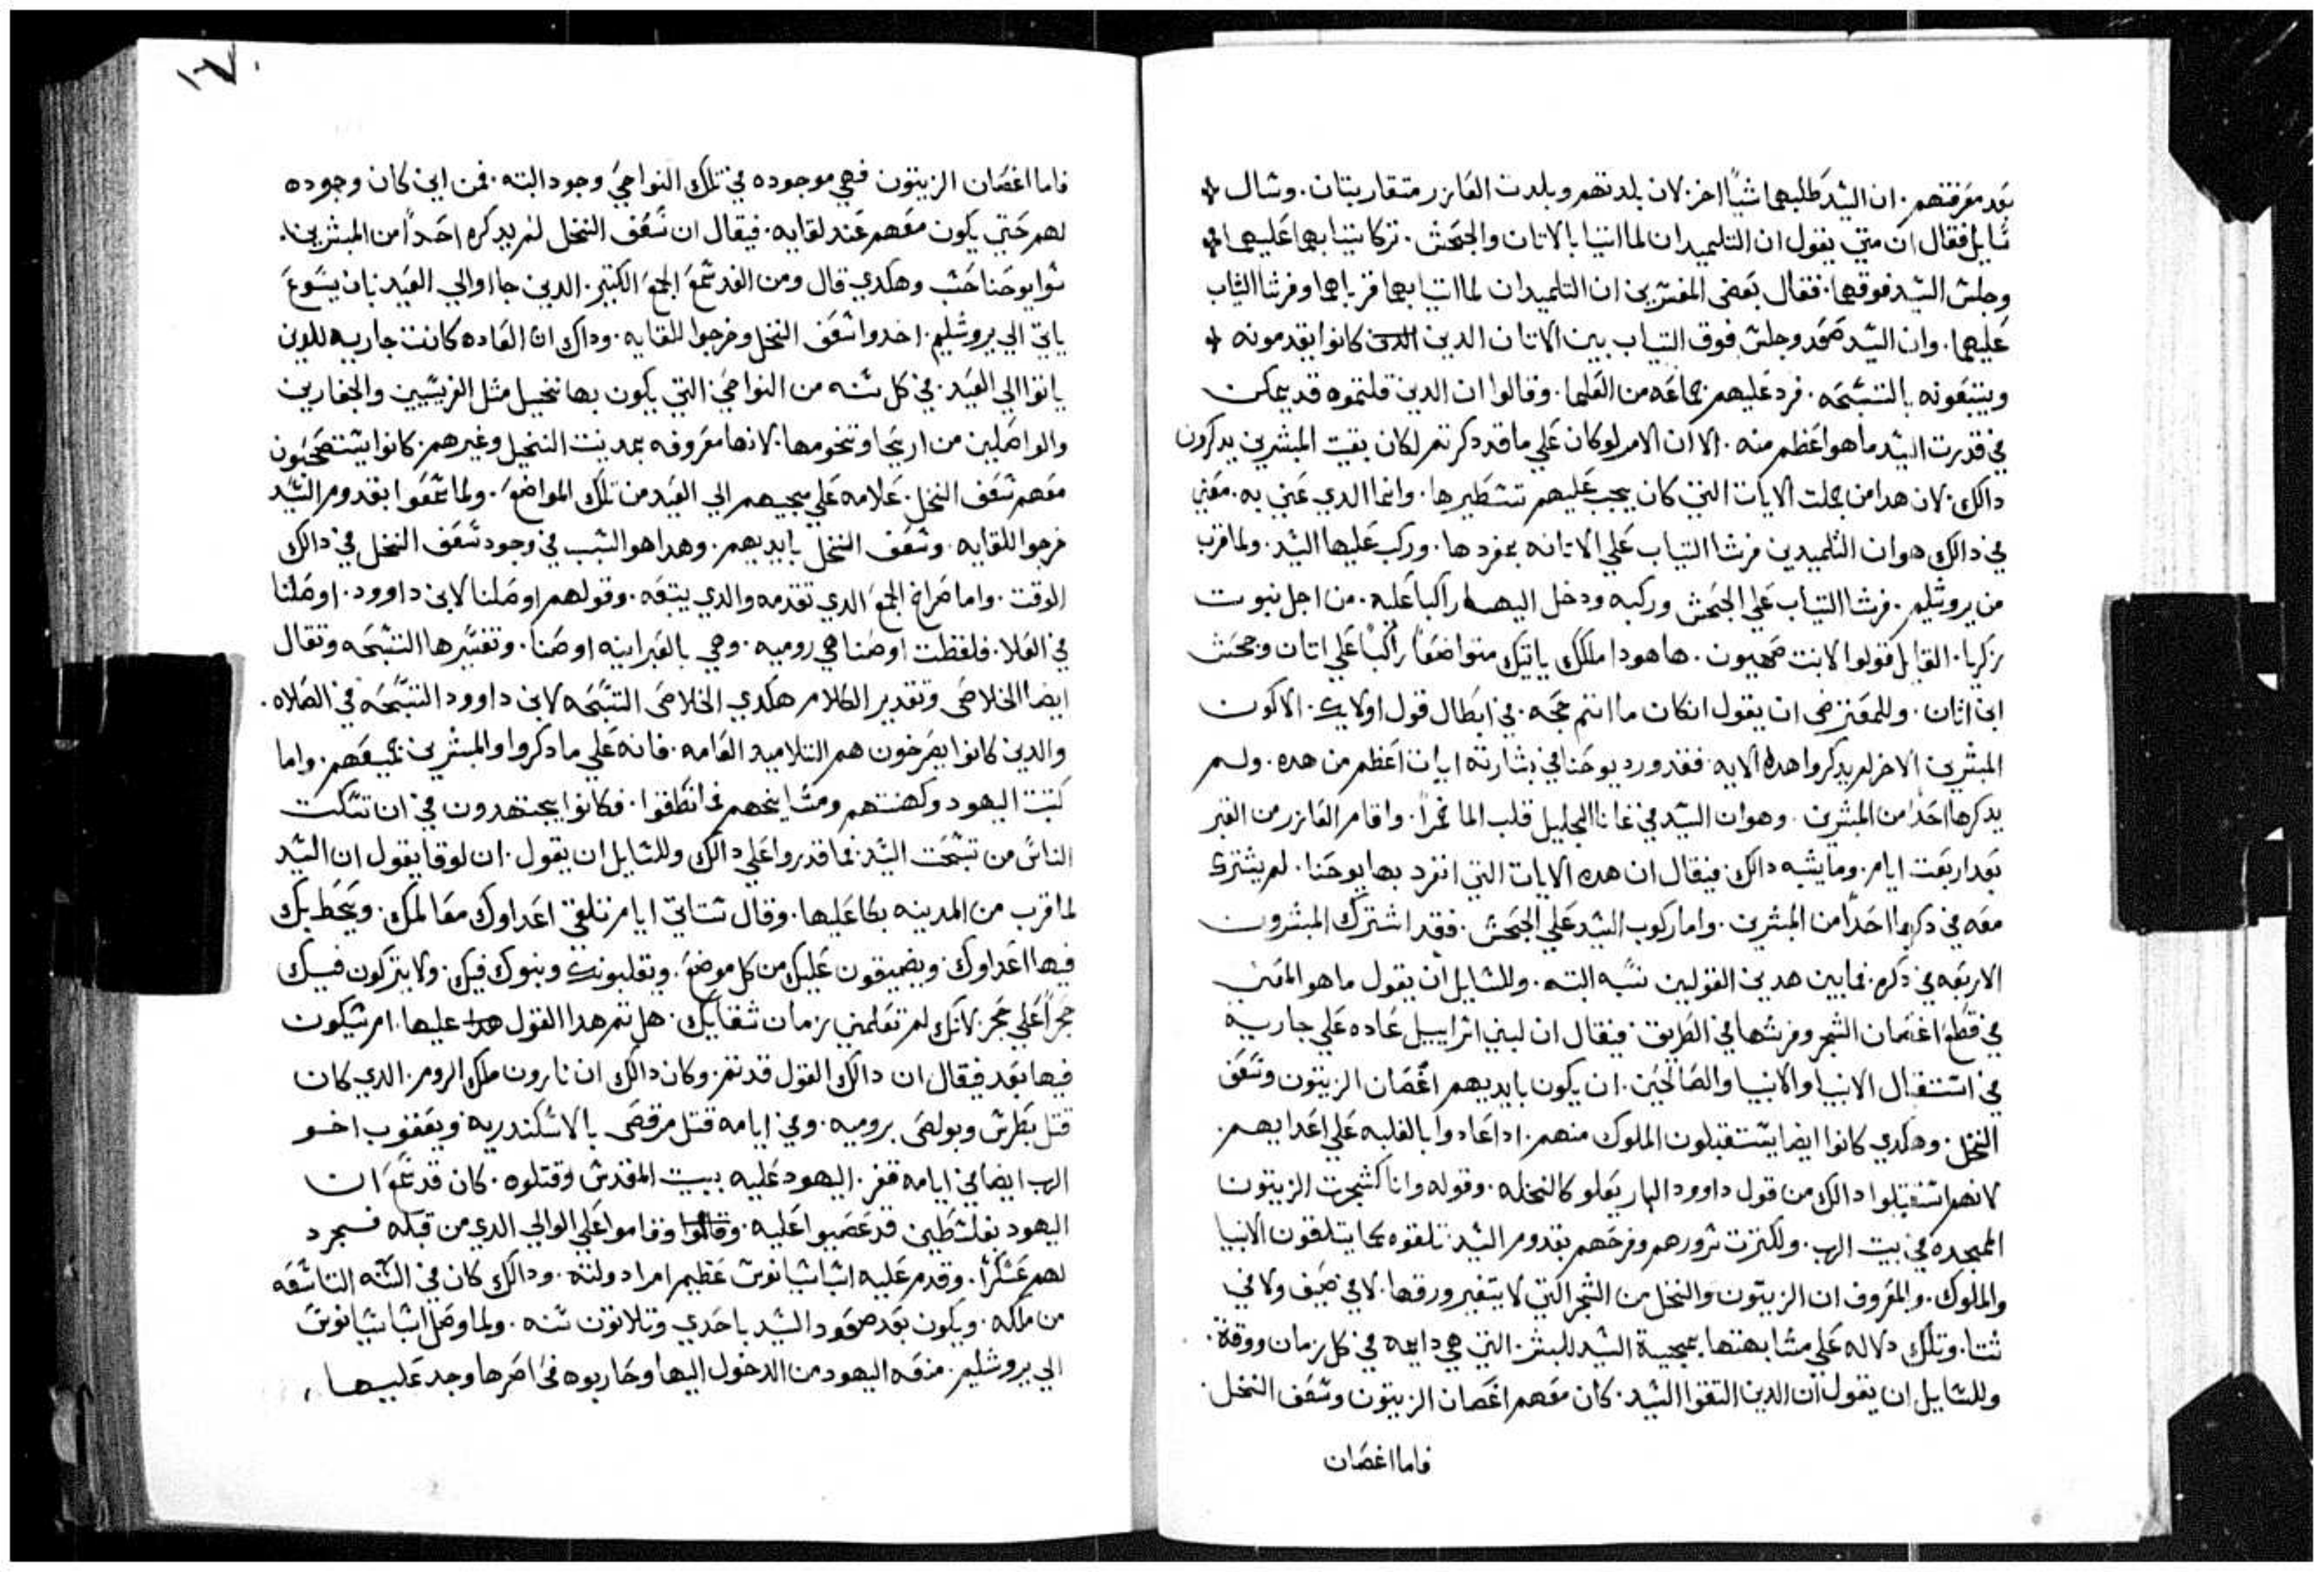 بعد معرفتهم. ان السيد طلبهما شيًا اخر. لان بلدتهم وبلدت العازر متقاربتان. وسال
سايل فقال ان متي يقول ان التلميدان لما اتيا بالاتان والجحش. تركا تيابهما عليهما
وجلس السيد فوقهما. فقال بعض المفسرين ان التلميدان لما اتيا بهما قرباهما وفرشا التياب
عليهما. وان السيد صعد وجلس فوق التياب بين الاتان الدين كانوا يقدمونه
ويتبعونه بالتسبحه. فرد عليهم جماعه من العلما. وقالوا ان الدين قلتموه قد يمكن
في قدرت السيد ما هو اعظم منه. الا ان الامر لو كان علي ما قد دكرتم لكان بقيت المبشرين يدكرون
دالك. لان هدا من جملت الايات التي كان يجب عليهم تسطيرها. وانما الدي عني به. معني
في دالك هو ان التلميدين فرشا التياب علي الاتانه بمفردها. وركب عليها السيد. ولما قرب
من يروشليم. فرشا التياب علي الجحش وركبه ودخل اليها راكبا عليه. من اجل نبوت
زكريا. القايل قولوا لابنت صهيون. هاهودا ملكك ياتيك متواضعًا راكبًا علي اتان وجحش
ابن اتان. وللمعترض ان يقول انكان ما انتم حجه. في ابطال قول اولايك. الا كون
المبشرين الاخر لم يدكروا هده الايه. فقد ورد يوحنا في بشارته ايات اعظم من هده. ولم
يدكرها احدًا من المبشرين. وهو ان السيد في غانا الجليل قلب الما خمرًا. واقام العازر من القبر
بعد اربعت ايام. وما يشبه دالك. فيقال ان هده الايات التي انفرد بها يوحنا. لم يشترك
معه في دكرها احدًا من المبشرين. واما ركوب السيد علي الجحش. فقد اشترك المبشرون
الاربعه في دكره. فما بين هدين القولين نسبه البته. وللسايل ان يقول ما هو المعني
في قطع اغصان الشجر وفرشها في الطريق. فيقال ان لبني اسراييل عاده علي جاريه
في استقبال الانبيا والانبيا والصالحين. ان يكون بايديهم اغصان الزيتون وسعف
النخل. وهكدي كانوا ايضا يستقبلون الملوك منهم. ادا عادوا بالغلبه علي اعدايهم.
لانهم استقبلوا دالك من قول داوود البار يعلو كالنخله. وقوله وانا كشجرت الزيتون
الممجده في بيت الرب. ولكترت سرورهم وفرحهم بقدوم السيد. تلقوه كما يتلقون الانبيا
والملوك. والمعروف ان الزيتون والنخل من الشجر التي لا يتغير ورقها. لا في صيف ولا في
شتا. وتلك دلاله علي مشابهتها بمجية السيد للبشر. التي هي دايمه في كل زمان ووقة.
وللسايل ان يقول ان الدين التقوا السيد. كان معهم اغصان الزيتون وسعف النخل.
فاما اغصان
١٦٧
فاما اغصان الزيتون فهي موجوده في تلك النواحي وجود البته. فمن اين كان وجوده
لهم حتي يكون معهم عند لقايه. فيقال ان سعف النخل لم يدكره احدًا من المبشرين.
سوا يوحنا حسب وهكدي قال ومن الغد سمع الجمع الكتير. الدين جاا والي العيد بان يسوع
ياتي الي يروشليم. اخدوا سعف النخل وخرجوا للقايه. وداك ان العاده كانت جاريه للدين
ياتوا الي العيد. في كل سنه من النواحي التي يكون بها نخيل مثل الفريسيين والجفارين
والواصلين من اريحا وتخومها. لانها معروفه بمدينت النخيل وغيرهم. كانوا يستصحبون
معهم سعف النخل. علامه علي مجيهم الي العيد من تلك المواضع. ولما سمعوا بقدوم السيد
خرجوا للقايه. وسعف النخل بايديهم. وهدا هو السبب في وجود سعف النخل في دالك
الوقت. واما صراخ الجمع الدي تقدمه والدي يتبعه. وقولهم اوصلنا لابن داوود. اوصلنا
في العلا. فلفظت اوصنا هي روميه. وهي بالعبرانيه اوصنا. وتفسيرها التسبحه وتقال
ايضا الخلاص وتقدير الكلام هكدي الخلاص التسبحه لابن داوود التسبحه في الصلاه.
والدين كانوا يصرخون هم التلاميد العامه. فانه علي ما دكروا والمبشرين جميعهم. واما
كتبت اليهود وكهنتهم ومشايخهم فما نطقوا. فكانوا يجتهدون في ان تسكت
الناس من تسبحت السيد. فما قدروا علي دالك وللسايل ان يقول. ان لوقا يقول ان السيد
لما قرب من المدينه بكا عليها. وقال ستاتي ايام تلقي اعداوك معالمك. ويحط بك
فيها اعداوك. ويضيقون عليك من كل موضع. ويقلبونك وبنوك فيك. ولا يتركون فيك
حجرًا علي حجر. لانك لم تعلمي زمان شقايك. هل تم هدا القول هدا عليها. ام سيكون
فيها بعد فيقال ان دالك القول قد تم. وكان دالك ان نارون ملك الروم. الدي كان
قتل بطرس وبولص بروميه. وفي ايامه قتل مرقص بالاسكندريه ويعقوب اخو
الرب ايضا في ايامه قفز. اليهود عليه ببيت المقدس وقتلوه. كان قد سمع ان
اليهود بفلسطين قد عصيوا عليه. وقالوا وقاموا علي الوالي الدي من قبله فسجرد
لهم عسكرًا. وقدم عليه اسباسيانوس عظيم امرا دولته. ودالك كان في السنه التاسعه
من ملكه. ويكون بعد صعود السيد باحدي وتلاتون سنه. ولما وصل اسباسيانوس
الي يروشليم. منعه اليهود من الدخول اليها وحاربوه فحاصرها وجد عليها.